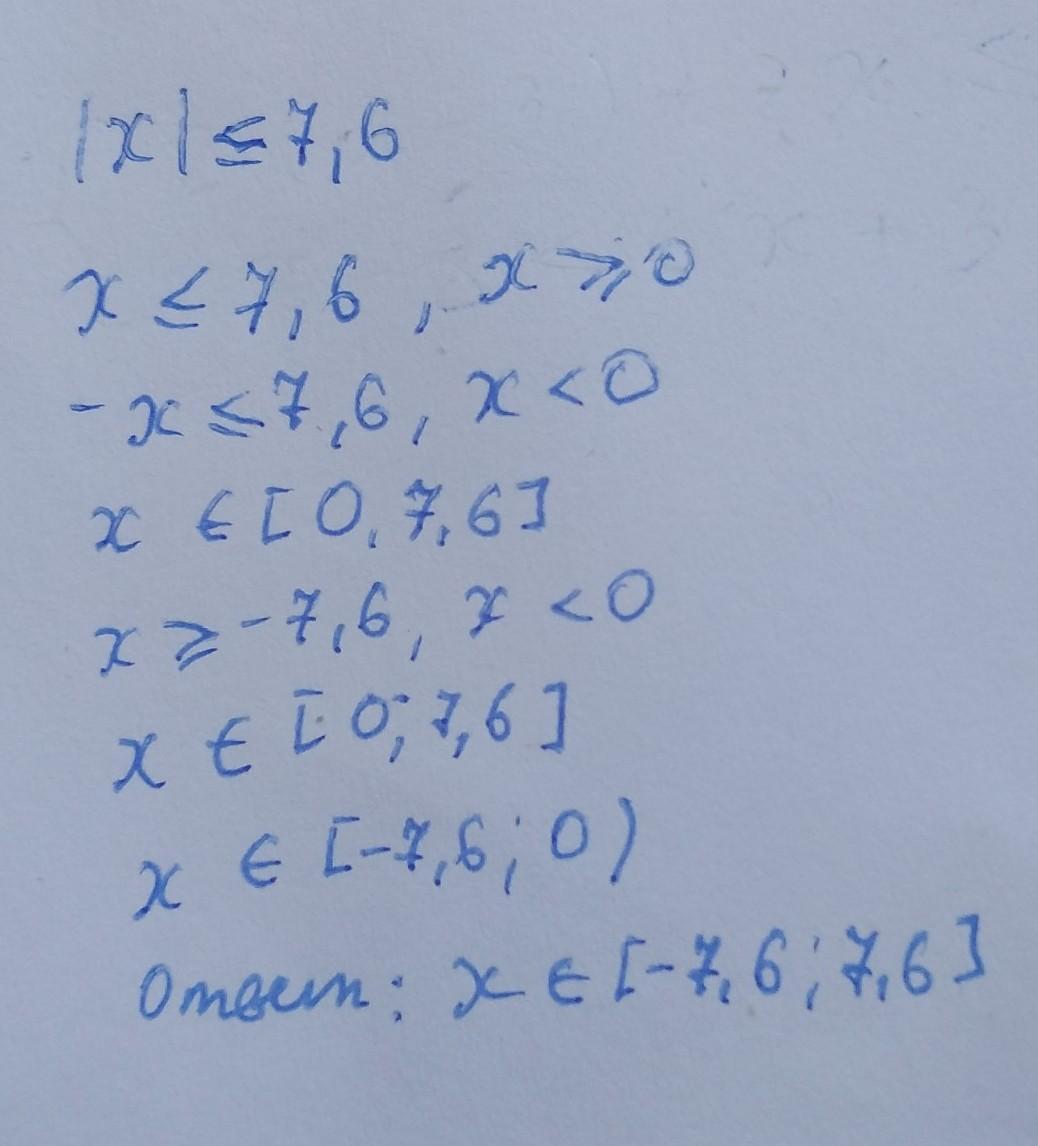 |x| ≤ 7,6
x ≤ 7,6 , x ⩾ 0
- x ≤ 7,6, x < 0
x ∈ [ 0, 7,6]
x ⩾ -7,6, x < 0
x ∈ [ 0; 7,6 ]
x ∈ [-7,6; 0)
Ответ: x ∈ [-7,6; 7,6]